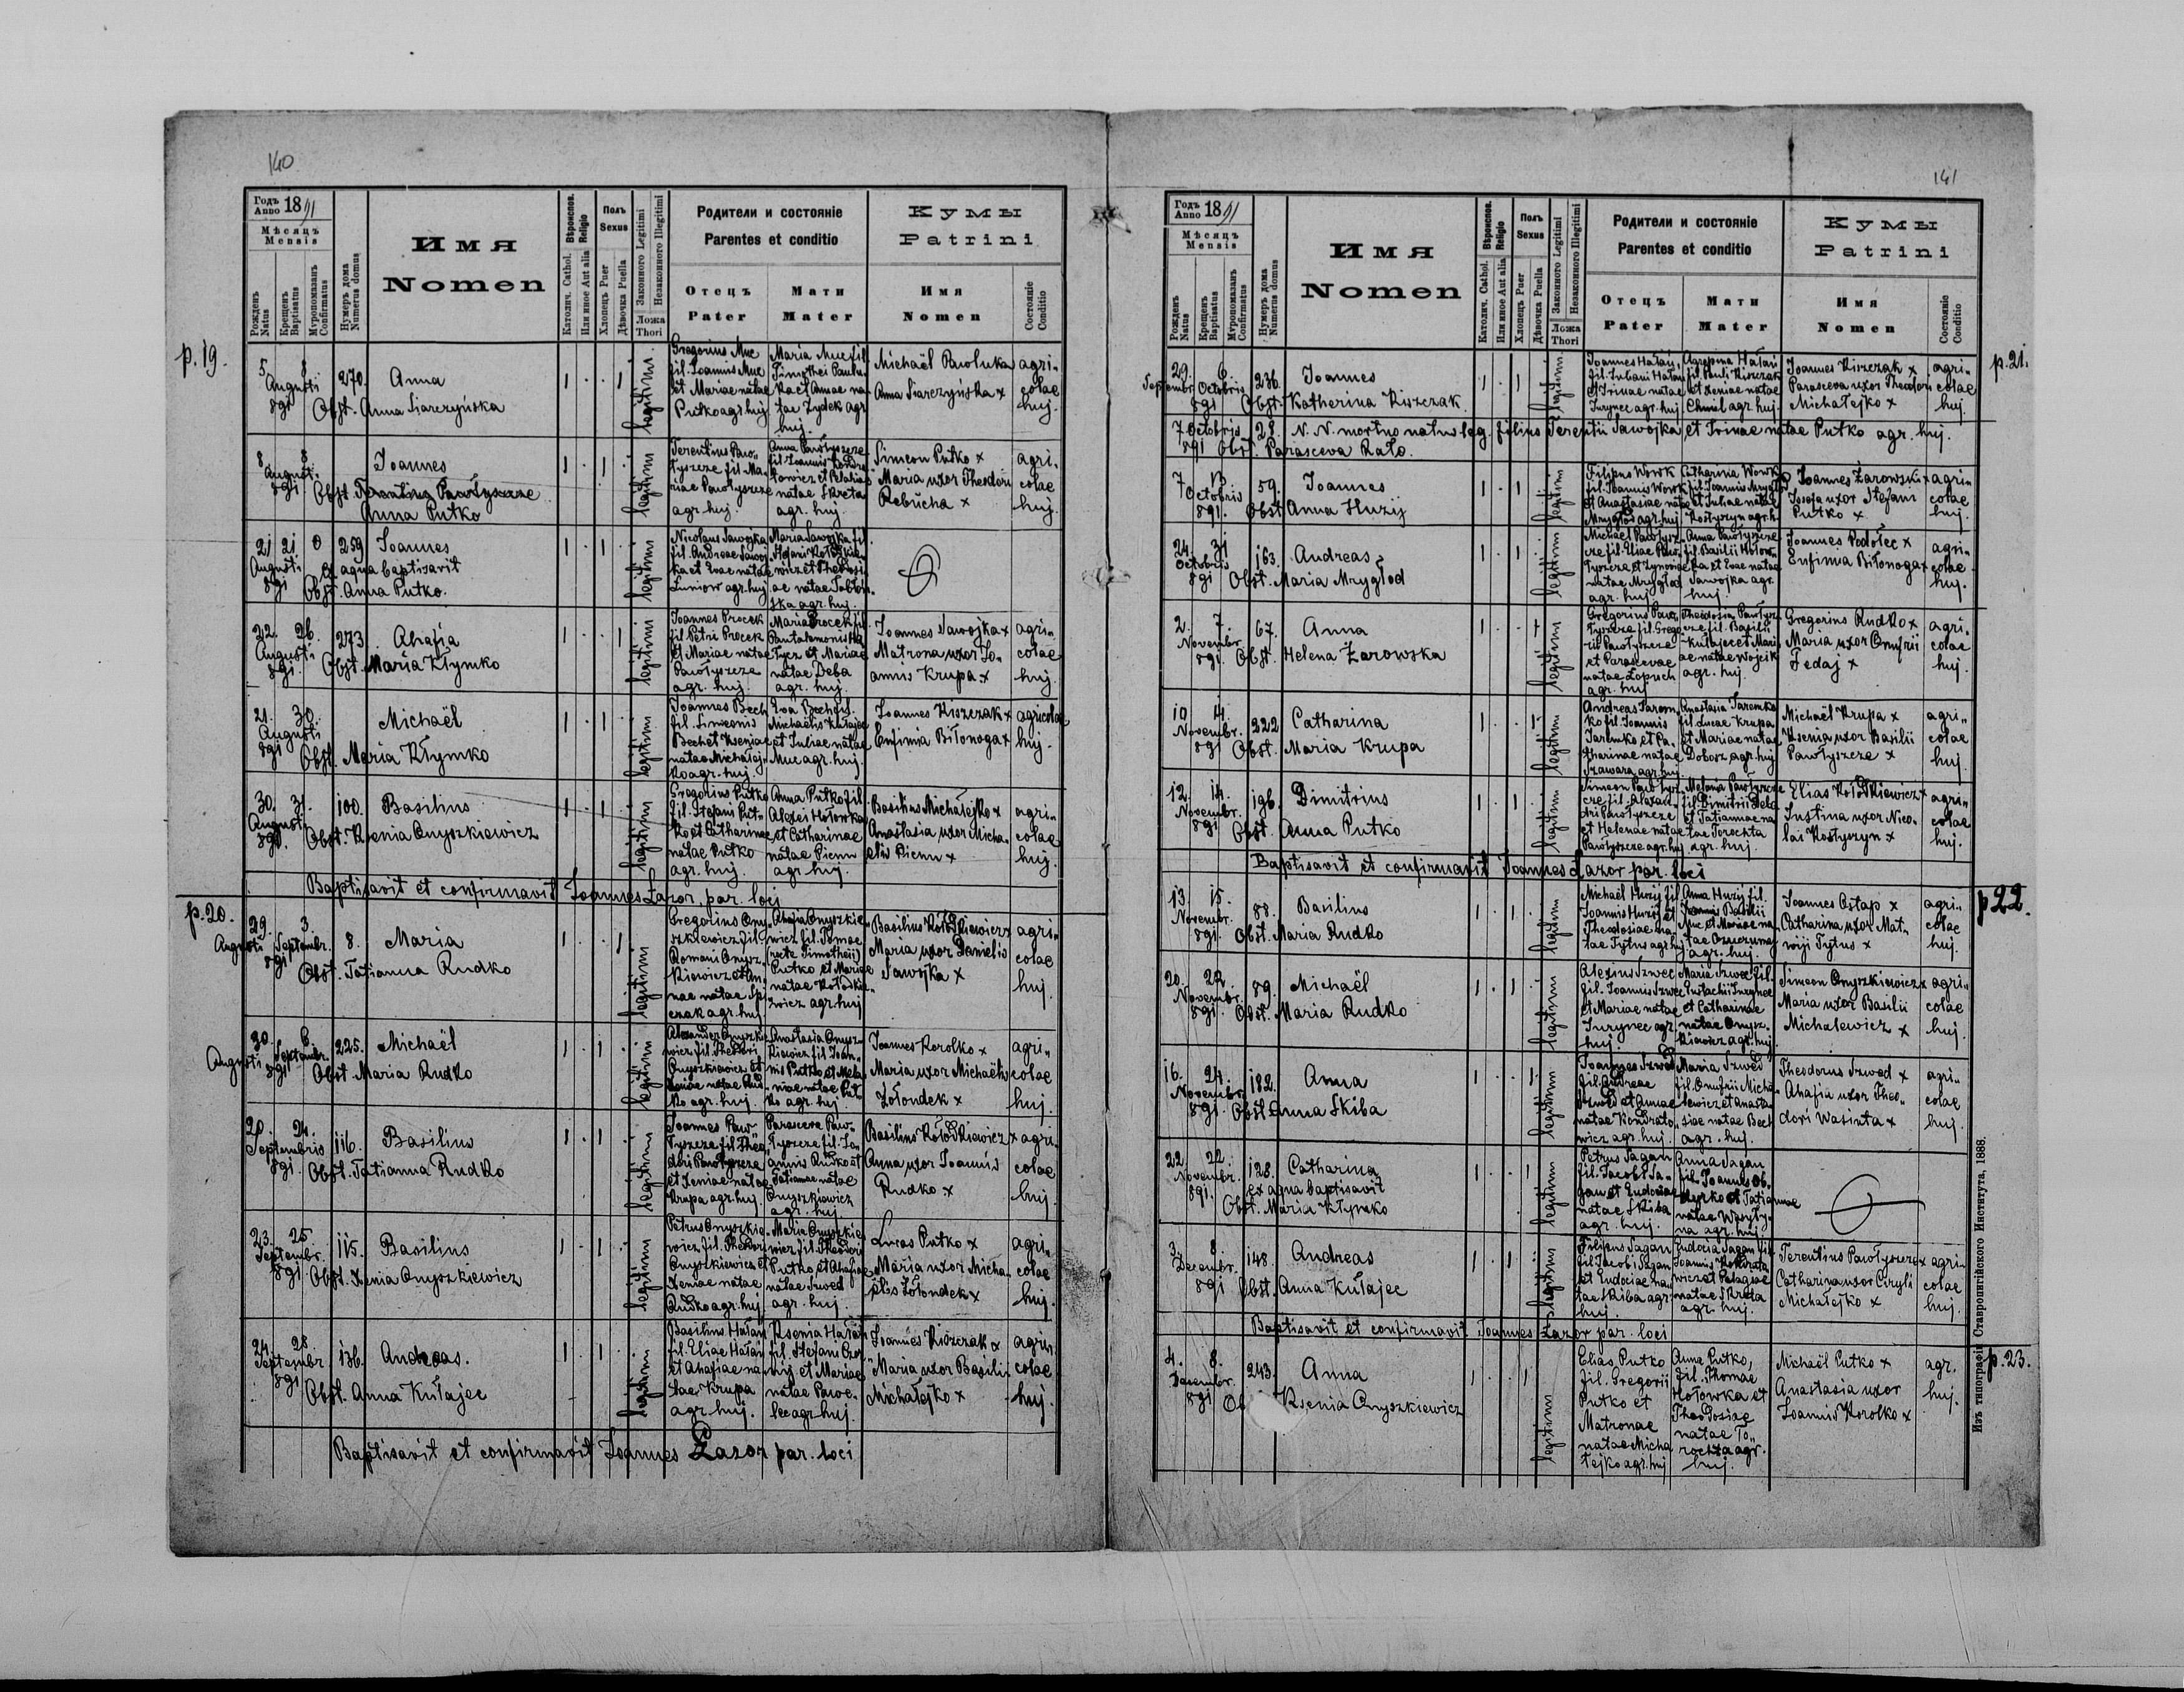 140
Годъ Anno 1891
Мѣсяцъ Mensis
Рожденъ Natus
Крещенъ Baptisatus
Мѵропомазанъ Confirmatus
Нумеръ дома Numerus domus
Имя Nomen
Вѣроиспов. Religio
Католич. Cathol.
Или иное Aut alia
Полъ Sexus
Хлопецъ Puer
Дѣвочка Puella
Законного Legitimi
Незаконного Illegitimi
Ложа Thori
Родители и состоянie
Parentes et conditio
Отецъ Pater
Мати Mater
Кумы Patrini
Имя Nomen
Состоянie Conditio
p. 19.
5 8 Augusti 891 270. Anna
Obst. Anna Siarczyńska
legitimi
Gregorius Muc fil. Joannis Muc et Mariae natae Putko agr. huj.
Maria Muc fil. Timothei Pawluka et Annae natae Zydek agr. huj.
Michaël Pawluka
Anna Siarczyńska x
agricolae huj.
8 8 Augusti 891 Joannes
Obst. Terentius Pawłyszcze
Anna Putko
legitimi
Terentius Pawłyszcze fil. Mariae Pawłyszcze agr. huj.
natae Skreta agr. huj.
Simeon Putko x
Maria uxor Theodori Rebucha x
agricolae huj.
21 21 0 Augusti 891 259 Joannes
ex aqua baptisavit
Obst. Anna Putko.
legitimi
Nicolaus Sawojka fil. Andreae Sawojka et Evae natae Luniow agr. huj.
Maria Sawojka fil. Stefani Kołodkiewicz et Theodosiae natae Jabłońska agr. huj.
22. 26. Augusti 891. 273 Ahafia
Obst. Maria Kłymko
legitimi
Joannes Procek fil. Petri Procek et Mariae natae Pawłyszcze agr. huj.
Maria Procek fil. et Mariae natae Deba agr. huj.
Joannes Sawojka x
Matrona uxor Joannis Krupa x
agricolae huj.
21. 30. Augusti 891 Michaël
Obst. Maria Kłymko
legitimi
Joannes Bech fil. Simeonis Bech et Kseniae natae Michałejko agr. huj.
Eva Bech fil. Michaelis Kułajec et Juliae natae Muc agr. huj.
Joannes Kiszczak x
Eufimia Biłonoga x
agricolae huj.
30. 31. Augusti 891. 100. Basilius
Obst. Ksenia Onyszkiewicz
legitimi
Gregorius Putko fil. Stefani Putko et Catharinae natae Putko agr. huj.
Anna Putko fil. Alexei Hołowka et Catharinae natae Pienu agr. huj.
Basilius Michałejko x
Anastasia uxor Michaelis Pienu x
agricolae huj.
Baptisavit et confirmavit Joannes Łazor, par. loci
p. 20.
29. Augusti 3 Septembr. 891 8. Maria
Obst. Tatianna Rudko
legitimi
Gregorius Onyszkiewicz fil. Romani Onyszkiewicz et Annae natae Spiczak agr. huj.
Ahafia Onyszkiewicz fil. Tomae (recte Timotheii) Putko et Mariae natae Kołodkiewicz agr. huj.
Basilius Kołodkiewicz x
Maria uxor Danielis Sawojka x
agricolae huj.
30. Augusti 6 Septembr. 891 225. Michaël
Obst. Maria Rudko
legitimi
Alexander Onyszkiewicz fil. Theodori Onyszkiewicz et Xeniae natae Rudko agr. huj.
Anastasia Onyszkiewicz fil. Joannis Putko et Melaniae natae Putko agr. huj.
Joannes Korolko x
Maria uxor Michaelis Żołondek x
agricolae huj.
20. 24. Septembris 891 116. Basilius
Obst. Tatianna Rudko
legitimi
Joannes Pawłyszcze fil. Theodori Pawłyszcze et Xeniae natae Krupa agr. huj.
Parasceva Pawłyszcze fil. Joannis Rudko et Tatiannae natae Onyszkiewicz agr. huj.
Basilius Kołodkiewicz x
Anna uxor Joannis Rudko x
agricolae huj.
23. 25. Septembr. 891 115. Basilius
Obst. Xenia Onyszkiewicz
legitimi
Petrus Onyszkiewicz fil. Theodori Onyszkiewicz et Xeniae natae Rudko agr. huj.
Maria Onyszkiewicz fil. Theodori Putko et Ahafiae natae Szwed agr. huj.
Lucas Putko x
Maria uxor Michaelis Żołondek x
agricolae huj.
24. 28. Septembr 891 136. Andreas.
Obst. Anna Kułajec
legitimi
Basilius Hałań fil. Eliae Hałań et Ahafiae natae Krupa agr. huj.
Ksenia Hałań fil. Stefani et Mariae natae agr. huj.
Joannes Kiszczak x
Maria uxor Basilii Michałejko x
agricolae huj.
Baptisavit et confirmavit Joannes Łazor par. loci
141
Годъ Anno 1891
Мѣсяцъ Mensis
Рожденъ Natus
Крещенъ Baptisatus
Мѵропомазанъ Confirmatus
Нумеръ дома Numerus domus
Имя Nomen
Вѣроиспов. Religio
Католич. Cathol.
Или иное Aut alia
Полъ Sexus
Хлопецъ Puer
Дѣвочка Puella
Законного Legitimi
Незаконного Illegitimi
Ложа Thori
Родители и состоянie
Parentes et conditio
Отецъ Pater
Мати Mater
Кумы Patrini
Имя Nomen
Состоянie Conditio
p. 21.
29. Septembr. 6. Octobris 891 236. Joannes
Obst. Katherina Kiszczak
legitimi
Joannes Hałań, fil. Juliani Hałań et Irinae natae Jurynec agr. huj.
Agrepina Hałań fil. Pauli Kiszczak et Xeniae natae Chmil agr. huj.
Joannes Kiszczak x
Parasceva uxor Theodori Michałejko x
agricolae huj.
7 Octobris 891 28. N. N. mortuo natus leg. filius Terentii Sawojka et Irinae natae Putko agr. huj.
Obst. Parasceva Rało.
7 13 Octobris 891. 59. Joannes
Obst. Anna Huzij
legitimi
Filipus Wowk fil. Joannis Wowk et Anastasiae natae Mrygłod agr. huj.
Catharina Wowk fil. Joannis Mrygłod et Juliae natae Kostyszyn agr. h.
Joannes Żarowski x
Josefa uxor Stefani Putko x
agricolae huj.
24. 31 Octobris 891 163. Andreas
Obst. Maria Mrygłod
legitimi
Michael Pawłyszcze fil. Eliae Pawłyszcze et natae Mrygłod agr. huj.
Anna Pawłyszcze fil. Basilii Hołowka et Evae natae Sawojka agr. huj.
Joannes Podolec x
Eufimia Biłonoga x
agricolae huj.
2. 7. Novembr. 891. 67. Anna
Obst. Helena Żarowska
legitimi
Gregorius Pawłyszcze fil. Gregorii Pawłyszcze et Parascevae natae Łopuch agr. huj.
Theodosia Pawłyszcze fil. Basilii Kułajec et Mariae natae Wojcik agr. huj.
Gregorius Rudko x
Maria uxor Onufrii Fedaj x
agricolae huj.
10 14. Novembr. 891 222 Catharina
Obst. Maria Krupa
legitimi
Andreas Jaremko fil. Joannis Jaremko et Catharinae natae Szawara agr. huj.
Anastasia Jaremko fil. Lucae Krupa et Mariae natae Dobosz agr. huj.
Michaël Krupa x
Ksenia uxor Basilii Pawłyszcze x
agricolae huj.
12. 14. Novembr. 891 196. Dimitrius
Obst. Anna Putko
legitimi
Simeon Pawłyszcze fil. Alexandri Pawłyszcze et Helenae natae Pawłyszcze agr. huj.
Melania Pawłyszcze fil. Dimitrii Deba et Tatiannae natae Torochta agr. huj.
Elias Kołodkiewicz x
Justina uxor Nicolai Kostyszyn x
agricolae huj.
Baptisavit et confirmavit Joannes Łazor par. loci
p 22.
13. 15. Novembr. 891. 88. Basilius
Obst. Maria Rudko
legitimi
Michaël Huzij fil. Joannis Huzij et Theodosiae natae Tytus agr. huj.
Anna Huzij fil. Basilii Muc et Mariae natae agr. huj.
Joannes Ostap x
Catharina uxor Matwiji Tytus x
agricolae huj.
20. 22. Novembr. 891. 89. Michaël
Obst. Maria Rudko
legitimi
Alexius Szwec fil. Joannis Szwec et Mariae natae Jurynec agr. huj.
Maria Szwec fil. Eustachii Jurynec et Catharinae natae Onyszkiewicz agr. huj.
Simeon Onyszkiewicz x
Maria uxor Basilii Michalewicz x
agricolae huj.
16. 24. Novembr. 891. 182. Anna
Obst. Anna Skiba
legitimi
Joannes Szwed fil. Andreae Szwed et Annae natae Kondratowicz agr. huj.
Maria Szwed fil. Onufrii Michalewicz et Anastasiae natae Bech agr. huj.
Theodorus Szwed x
Ahafia uxor Theodori Wasiuta x
agricolae huj.
22. 22. Novembr. 891. 128. Catharina
ex aqua baptisavit
Obst. Maria Kłymko
legitimi
Petrus Sagan fil. Jacobi Sagan et Eudociae natae Skiba agr. huj.
Anna Sagan fil. Joannis et Tatiannae natae agr. huj.
3. 8. Decembr. 891 148. Andreas
Obst. Anna Kułajec
legitimi
Filipus Sagan fil. Jacobi Sagan et Eudociae natae Skiba agr. huj.
Eudocia Sagan fil. Joannis Kondratowicz et Pelagiae natae Skreta agr. huj.
Terentius Pawłyszcze x
Catharina uxor Cyryli Michałejko x
agricolae huj.
Baptisavit et confirmavit Joannes Łazor par. loci
p. 23.
4. 8. Decembr. 891 243. Anna
Ob Ksenia Onyszkiewicz
legitimi
Elias Putko fil. Gregorii Putko et Matronae natae Michałejko agr. huj
Anna Putko, fil. Thomae Hołowka et Theodosiae natae Torochta agr. huj.
Michaël Putko x
Anastasia uxor Joannis Korolko x
agr. huj.
Изъ типографіи Ставропигійского Института, 1888.